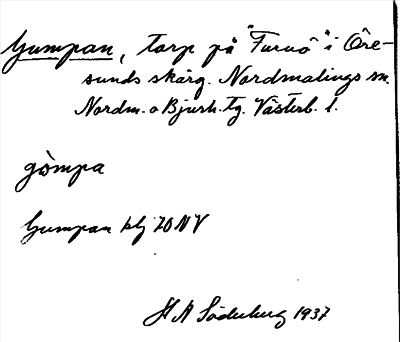 Gumpan, torp på "Furuö" i Öre-
sunds skärg. Nordmalings sn.
Nordm. o Bjurh. tg. Västerb. l.
gòmpa
Gumpan blj 70 NV
H A Söderberg 1937